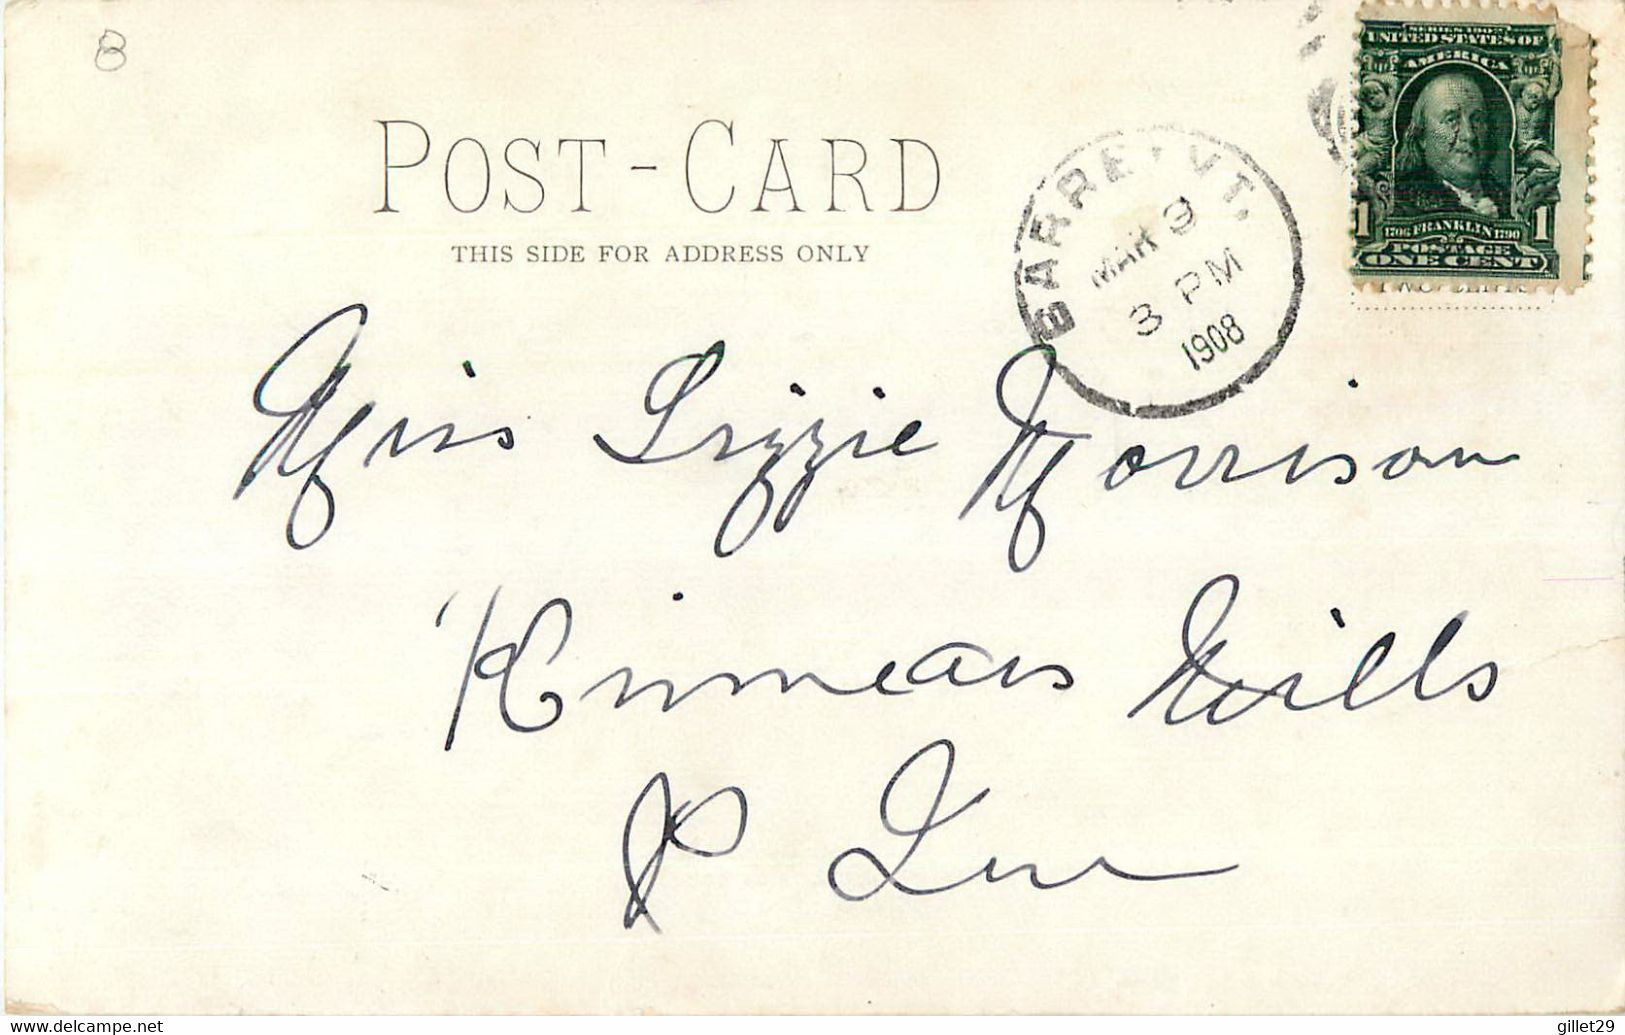 8
POST-CARD
THIS SIDE FOR ADDRESS ONLY
BARRE, VT.
MAR 9
3 PM
1908
SERIES 1902
UNITED STATES OF
AMERICA
1 1
1706 FRANKLIN 1790
POSTAGE
ONE CENT
Miss Lizzie Morrison
Kinnears Mills
P Que
www.delcampe.net
gillet29